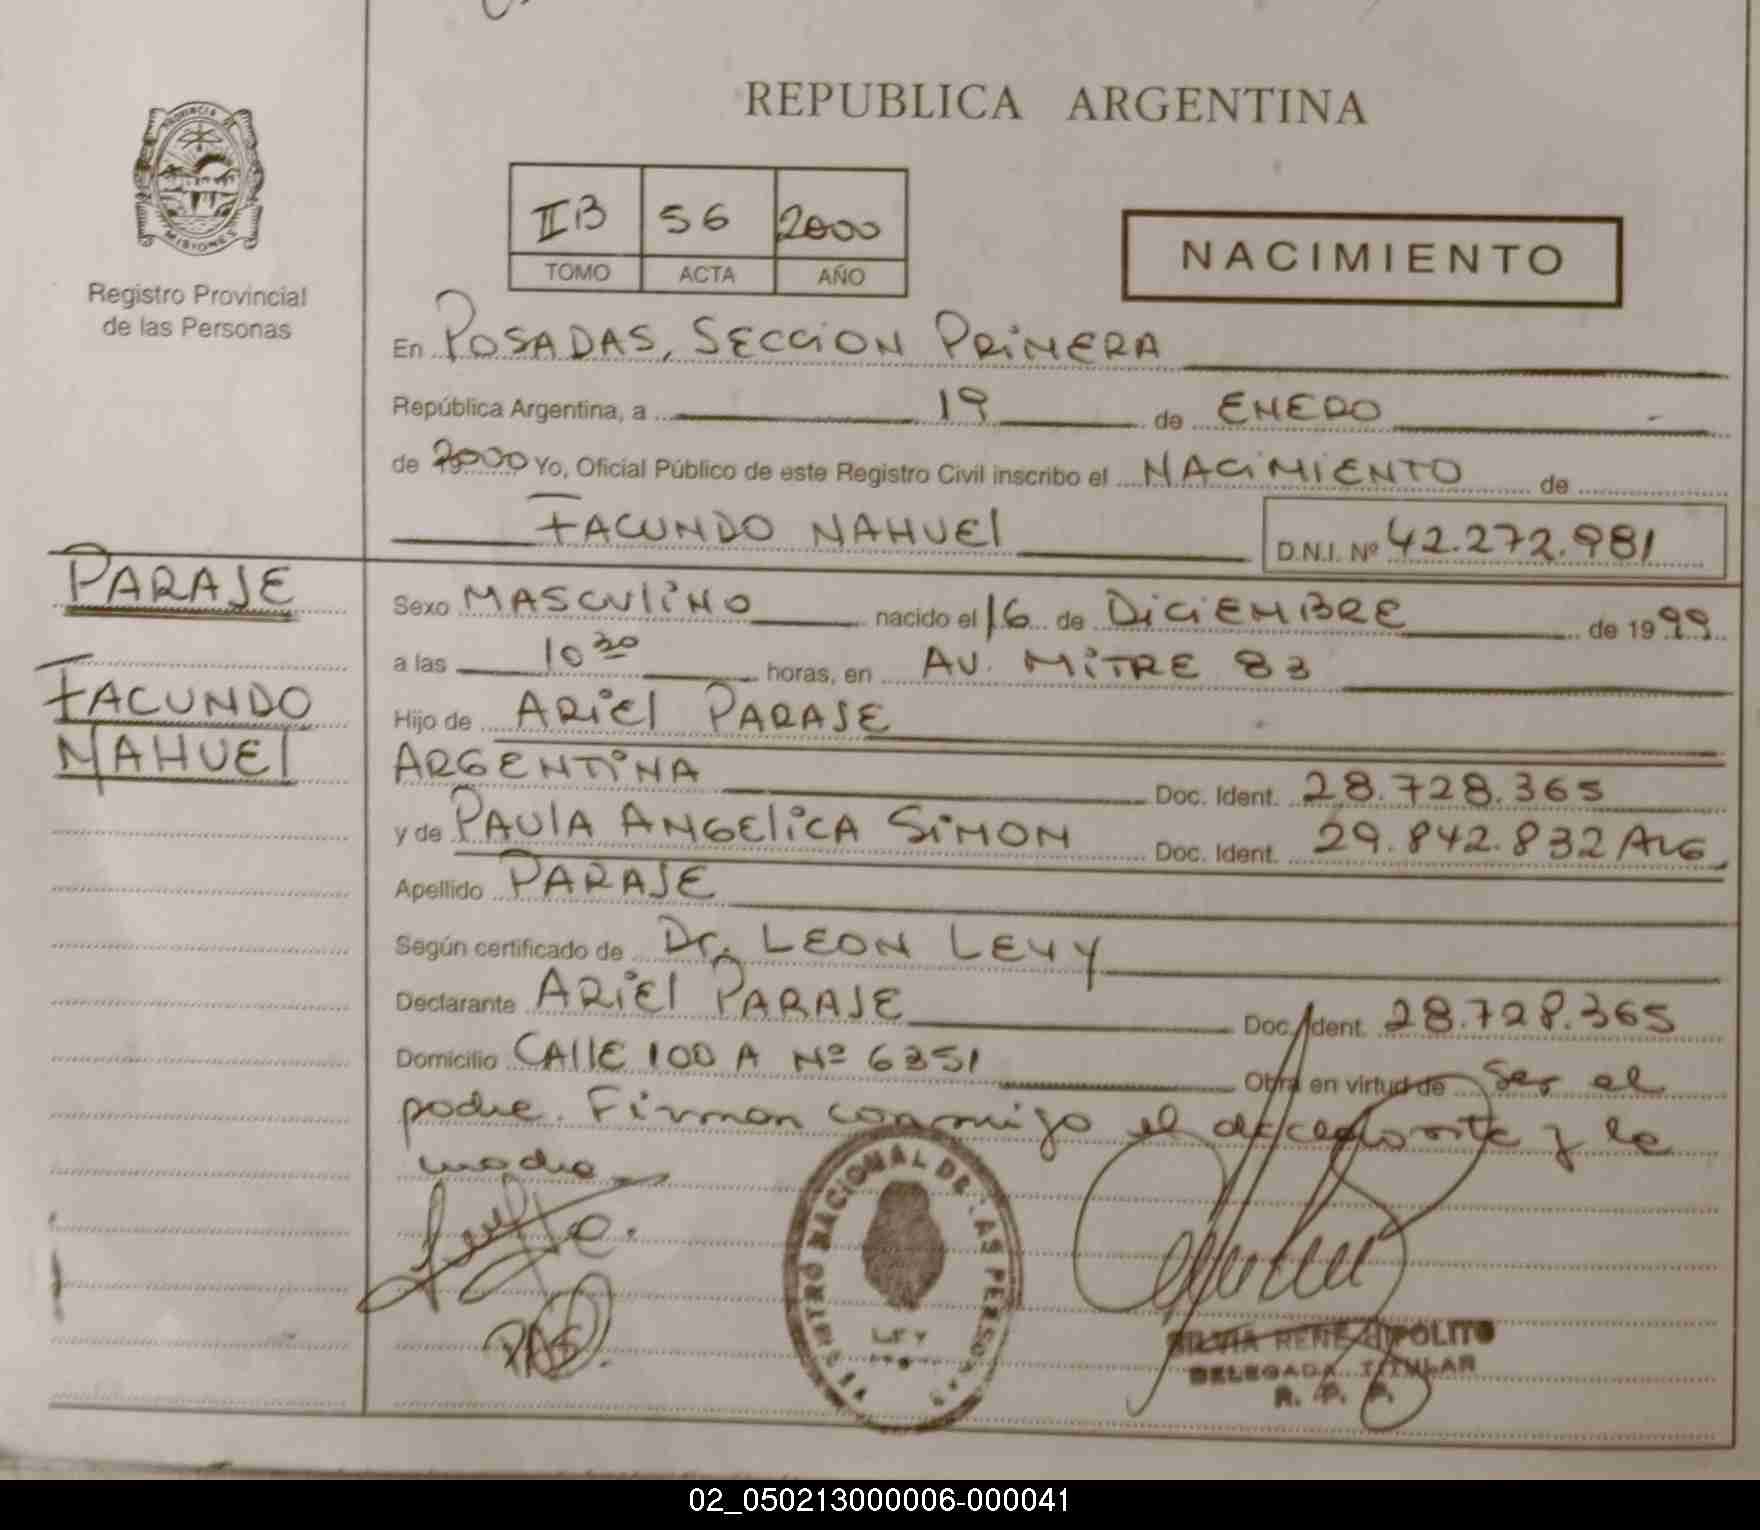 PROVINCIA DE
MISIONES
Registro Provincial
de las Personas
REPUBLICA ARGENTINA
IIB 56 2000
TOMO ACTA AÑO
NACIMIENTO
En POSADAS, SECCION PRIMERA
República Argentina, a 19 de ENERO
de 2000 Yo, Oficial Público de este Registro Civil inscribo el NACIMIENTO de
FACUNDO NAHUEL D.N.I. Nº 42.272.981
PARAJE
FACUNDO
NAHUEL
Sexo MASCULINO nacido el 16 de DICIEMBRE de 1999
a las 10 30 horas, en AV. MITRE 83
Hijo de ARIEL PARAJE
ARGENTINA Doc. Ident. 28.728.365
y de PAULA ANGELICA SIMON Doc. Ident. 29.842.832 ARG
Apellido PARAJE
Según certificado de Dr. LEON LEVY
Declarante ARIEL PARAJE Doc. Ident. 28.728.365
Domicilio CALLE 100 A Nº 6351 Obra en virtud de ser el
padre. Firman conmigo el declarante y la
madre
REGISTRO NACIONAL DE LAS PERSONAS
LEY
SILVIA RENE HIPOLITO
DELEGADA TITULAR
R. P. P.
02_050213000006-000041